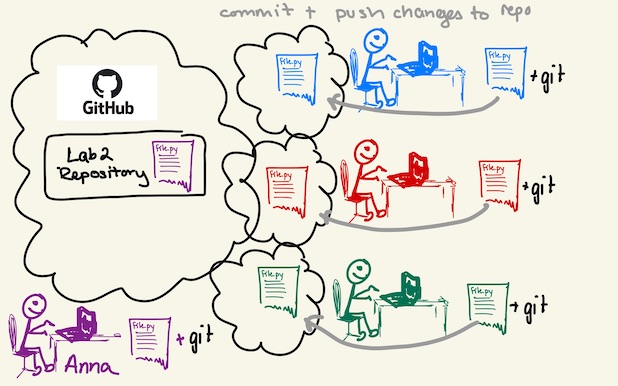 commit + push changes to repo
GitHub
Lab 2
Repository
file.py
file.py
file.py
+ git
file.py
file.py
+ git
file.py
file.py
+ git
file.py
+ git
Anna